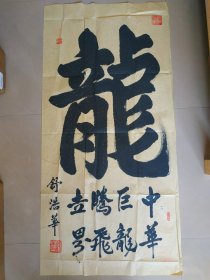 龍
中華
巨龍
騰飛
世界
舒浩華